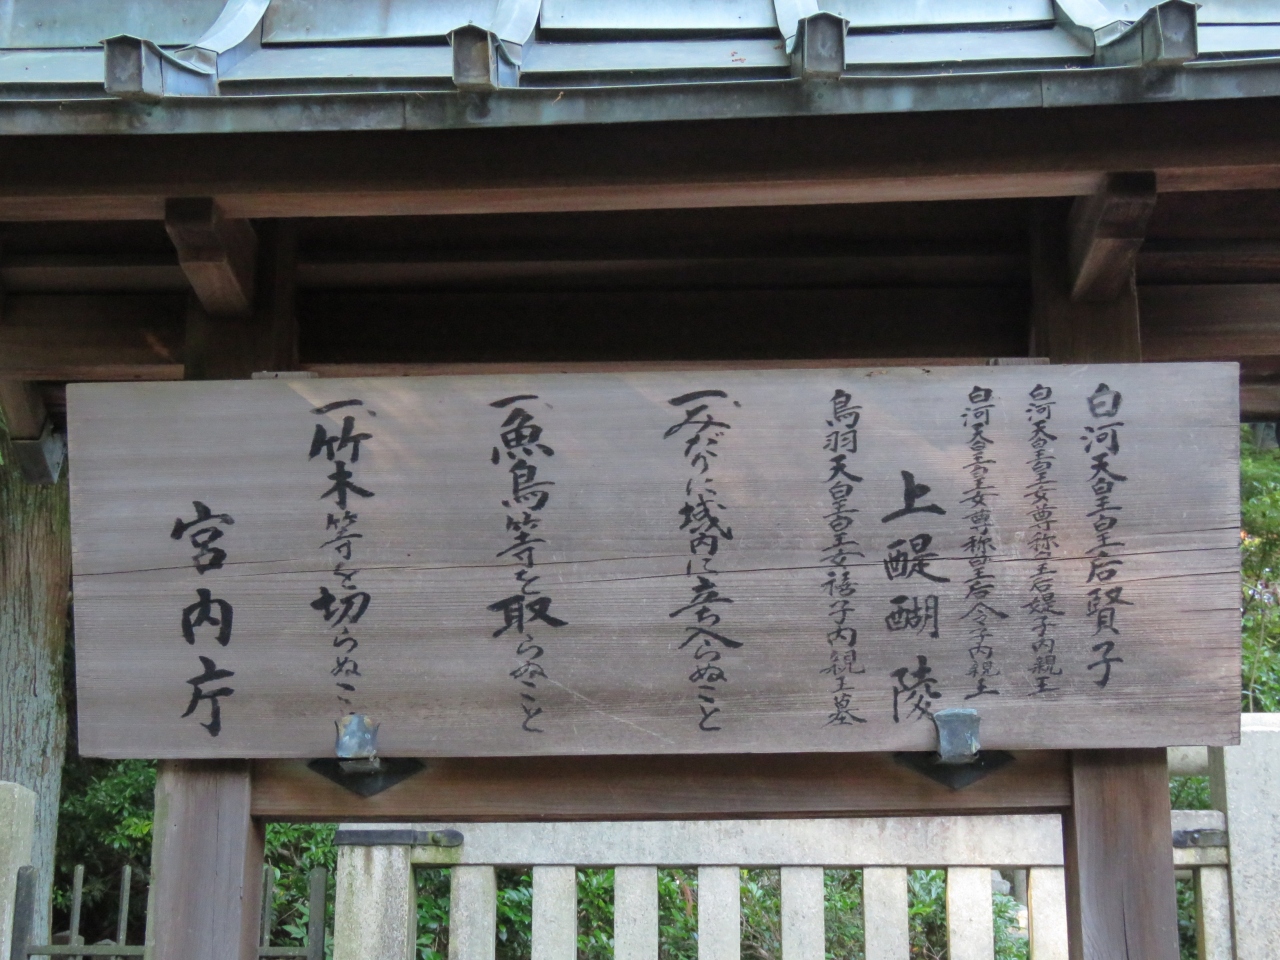 白河天皇皇后賢子
白河天皇皇女尊称皇后媞子内親王
白河天皇皇女尊称皇后令子内親王
上醍醐陵
鳥羽天皇皇女禧子内親王墓
一、みだりに域内に立ち入らぬこと
一、魚鳥等を取らぬこと
一、竹木等を切らぬこ
宮内庁